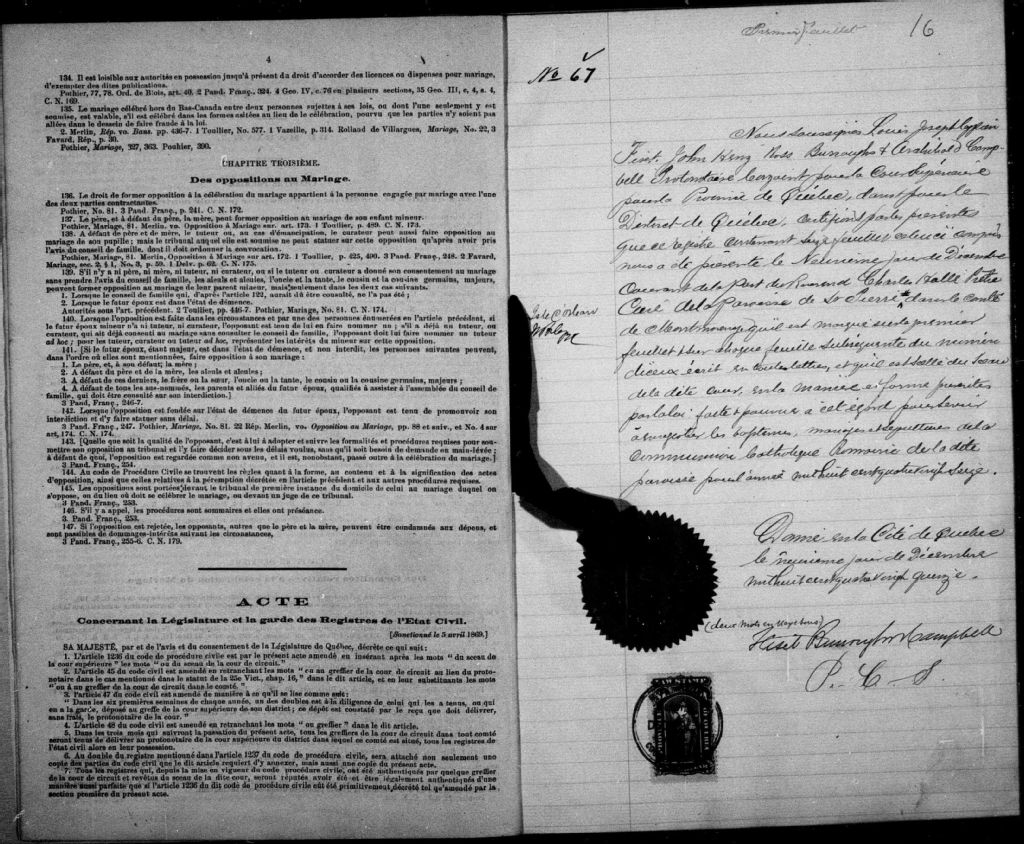 4
134. Il est loisible aux autorités en possession jusqu'à présent du droit d'accorder des licences ou dispenses pour mariage,
d'exempter des dites publications.
Pothier, 77, 78. Ord. de Blois, art. 40. 2 Pand. Franç., 324. 4 Geo. IV, c. 76 en plusieurs sections, 35 Geo. III, c, 4, s. 4,
C. N. 169.
135. Le mariage célébré hors du Bas-Canada entre deux personnes sujettes à ses lois, ou dont l'une seulement y est
soumise, est valable, s'il est célébré dans les formes usitées au lieu de la célébration, pourvu que les parties n'y soient pas
allées dans le dessein de faire fraude à la loi.
2. Merlin, Rép. vo. Bans. pp. 436-7. 1 Toullier, No. 577. 1 Vazeille, p. 314. Rolland de Villargues, Mariage, No. 22, 3
Favard, Rép., p. 30.
Pothier, Mariage, 327, 363. Pouhier, 390.
CHAPITRE TROISIÈME.
Des oppositions au Mariage.
136. Le droit de former opposition à la célébration du mariage appartient à la personne engagée par mariage avec l'une
des deux parties contractantes.
Pothier, No. 81. 3 Pand. Franç., p. 241. C. N. 172.
137. Le père, et à défaut du père, la mère, peut former opposition au mariage de son enfant mineur.
Pothier, Mariage, 81. Merlin, vo. Opposition à Mariage sur. art. 173. 1 Toullier, p. 489. C. N. 173.
138. A défaut de père et de mère, le tuteur ou, au cas d'émancipation, le curateur peut aussi faire opposition au
mariage de son pupille ; mais le tribunal auquel elle est soumise ne peut statuer sur cette opposition qu'après avoir pris
l'avis du conseil de famille, dont il doit ordonner la convocation.
Pothier, Mariage, 81. Merlin, vo. Opposition à Mariage sur art. 172. 1 Toullier, p. 425, 490. 3 Pand. Franç., 248. 2 Favard,
Mariage, sec. 2, § 1, No. 3, p. 59. 1 Delv. p. 62. C. N. 175.
139. S'il n'y a ni père, ni mère, ni tuteur, ni curateur, ou si le tuteur ou curateur a donné son consentement au mariage
sans prendre l'avis du conseil de famille, les aïeuls et aïeules, l'oncle et la tante, le cousin et la cousine germains, majeurs,
peuvent former opposition au mariage de leur parent mineur, mais seulement dans les deux cas suivants.
1. Lorsque le conseil de famille qui, d'après l'article 122, aurait dû être consulté, ne l'a pas été ;
2. Lorsque le futur époux est dans l'état de démence.
Autorités sous l'art. précédent. 2 Toullier, pp. 446-7. Pothier, Mariage, No. 81. C. N. 174.
140. Lorsque l'opposition est faite dans les circonstances et par une des personnes énumérées en l'article précédent, si
le futur époux mineur n'a ni tuteur, ni curateur, l'opposant est tenu de lui en faire nommer un ; s'il a déjà un tuteur, ou
curateur, qui ait déjà consenti au mariage sans consulter le conseil de famille, l'opposant doit lui faire nommer un tuteur
ad hoc ; pour les tuteur, curateur ou tuteur ad hoc, représenter les intérêts du mineur sur cette opposition.
141. [Si le futur époux, étant majeur, est dans l'état de démence, et non interdit, les personnes suivantes peuvent,
dans l'ordre où elles sont mentionnées, faire opposition à son mariage :
1. Le père, et, à son défaut, la mère ;
2. A défaut du père et de la mère, les aïeuls et aïeules ;
3. A défaut de ces derniers, le frère ou la sœur, l'oncle ou la tante, le cousin ou la cousine germains, majeurs ;
4. A défaut de tous les sus-nommés, les parents et alliés du futur époux, qualifiés à assister à l'assemblée du conseil de
famille, qui doit être consulté sur son interdiction.]
3 Pand. Franç., 246-7.
142. Lorsque l'opposition est fondée sur l'état de démence du futur époux, l'opposant est tenu de promouvoir son
interdiction et d'y faire statuer sans délai.
3 Pand. Franç., 247. Pothier, Mariage, No. 81. 22 Rép. Merlin, vo. Opposition au Mariage, pp. 88 et suiv., et No. 4 sur
art. 174. C. N. 174.
143. [Quelle que soit la qualité de l'opposant, c'est à lui à adopter et suivre les formalités et procédures requises pour sou-
mettre son opposition au tribunal et l'y faire décider sous les délais voulus, sans qu'il soit besoin de demande en main-levée ;
à défaut de quoi, l'opposition est regardée comme non avenu, et il est, nonobstant, passé outre à la célébration du mariage.]
3 Pand. Franç., 254.
144. Au code de Procédure Civile se trouvent les règles quant à la forme, au contenu et à la signification des actes
d'opposition, ainsi que celles relatives à la péremption décrétée en l'article précédent et aux autres procédures requises.
145. Les oppositions sont portées devant le tribunal de première instance du domicile de celui au mariage duquel on
s'oppose, ou du lieu où doit se célébrer le mariage, ou devant un juge de ce tribunal.
3 Pand. Franç., 253.
146. S'il y a appel, les procédures sont sommaires et elles ont préséance.
3. Pand. Franç., 253.
147. Si l'opposition est rejetée, les opposants, autres que le père et la mère, peuvent être condamnés aux dépens, et
sont passibles de dommages-intérêts suivant les circonstances,
3 Pand. Franç., 255-6. C. N. 179.
ACTE
Concernant la Législature et la garde des Registres de l'Etat Civil.
[Sanctionné le 5 avril 1869.]
SA MAJESTÉ, par et de l'avis et du consentement de la Législature de Québec, décrète ce qui suit :
1. L'article 1236 du code de procédure civile est par le présent acte amendé en insérant après les mots " du sceau de
la cour supérieure " les mots " ou du sceau de la cour de circuit."
2. L'article 45 du code civil est amendé en retranchant les mots " ou au greffier de la cour de circuit au lieu du proto-
notaire dans le cas mentionné dans le statut de la 25e Vict., chap. 16," dans le dit article, et en leur substituants les mots
" ou à un greffier de la cour de circuit dans le comté."
3. l'article 47 du code civil est amendé de manière à ce qu'il se lise comme suit :
" Dans les six premières semaines de chaque année, un des doubles est à la diligence de celui qui les a tenus, ou qui
en a la garde, déposé au greffe de la cour supérieure de son district ; ce dépôt est constaté par le reçu que doit délivrer,
sans frais, le protonotaire de la cour."
4. L'article 48 du code civil est amendé en retranchant les mots " ou greffier " dans le dit article.
5. Dans les trois mois qui suivront la passation du présent acte, tous les greffiers de la cour de circuit dans tout comté
seront tenus de délivrer au protonotaire de la cour supérieure du district dans lequel ce comté est situé, tous les registres de
l'état civil alors en leur possession.
6. Au double du registre mentionné dans l'article 1237 du code de procédure civile, sera attaché non seulement une
copie des parties du code civil que le dit article requiert d'y annexer, mais aussi une copie du présent acte.
7. Tous les registres qui, depuis la mise en vigueur du code procédure civile, ont été authentiqués par quelque greffier
de la cour de circuit et revêtus du sceau de la dite cour, seront réputés avoir été et être légalement authentiqués d'une
manière aussi parfaite que si l'article 1236 du dit code de procédure civile eût été primitivement décrété tel qu'amendé par la
section première du présent acte.
Premier feuillet
16
No 67
Nous soussignés Louis Joseph Cyprien
Fiset, John Henz Ross Burroughs & Archibald Camp-
bell Protonotaire Conjoint pour la Cour Supérieure
pour la Province de Québec, dans & pour le
District de Québec, Certifions par les présentes
que ce registre contenant seize feuillets celui ci compris
nous a été presenté le Neuvieme jour de Décembre
Courant de la Part du Révérend Charles Hallé Prêtre
Curé de la Paroisse de St Pierre* dans le Comté
de Montmorency qu'il est marqué sur le premier
feuillet & sur chaque feuille subsequente du numéro
d'iceux, écrit en toutes lettres, et qu'il est scellé du Sceau
de la dite Cour, en la maniere & forme prescrites
par la loi: faite & pourvue a cet égard pour servir
à enregistrer les baptemes, mariages et sépultures de la
Communion Catholique Romaine de la dite
paroisse pour l'année mil huit cent quatre vingt Seize.
Isle d'Orléans
Donné en la Cité de Quebec
le neuvieme jour de Décembre
mil huit cent quatre vingt quinze.
(deux mots en marge bons)
Fiset Burroughs & Campbell
P. C. S
LAW STAMP